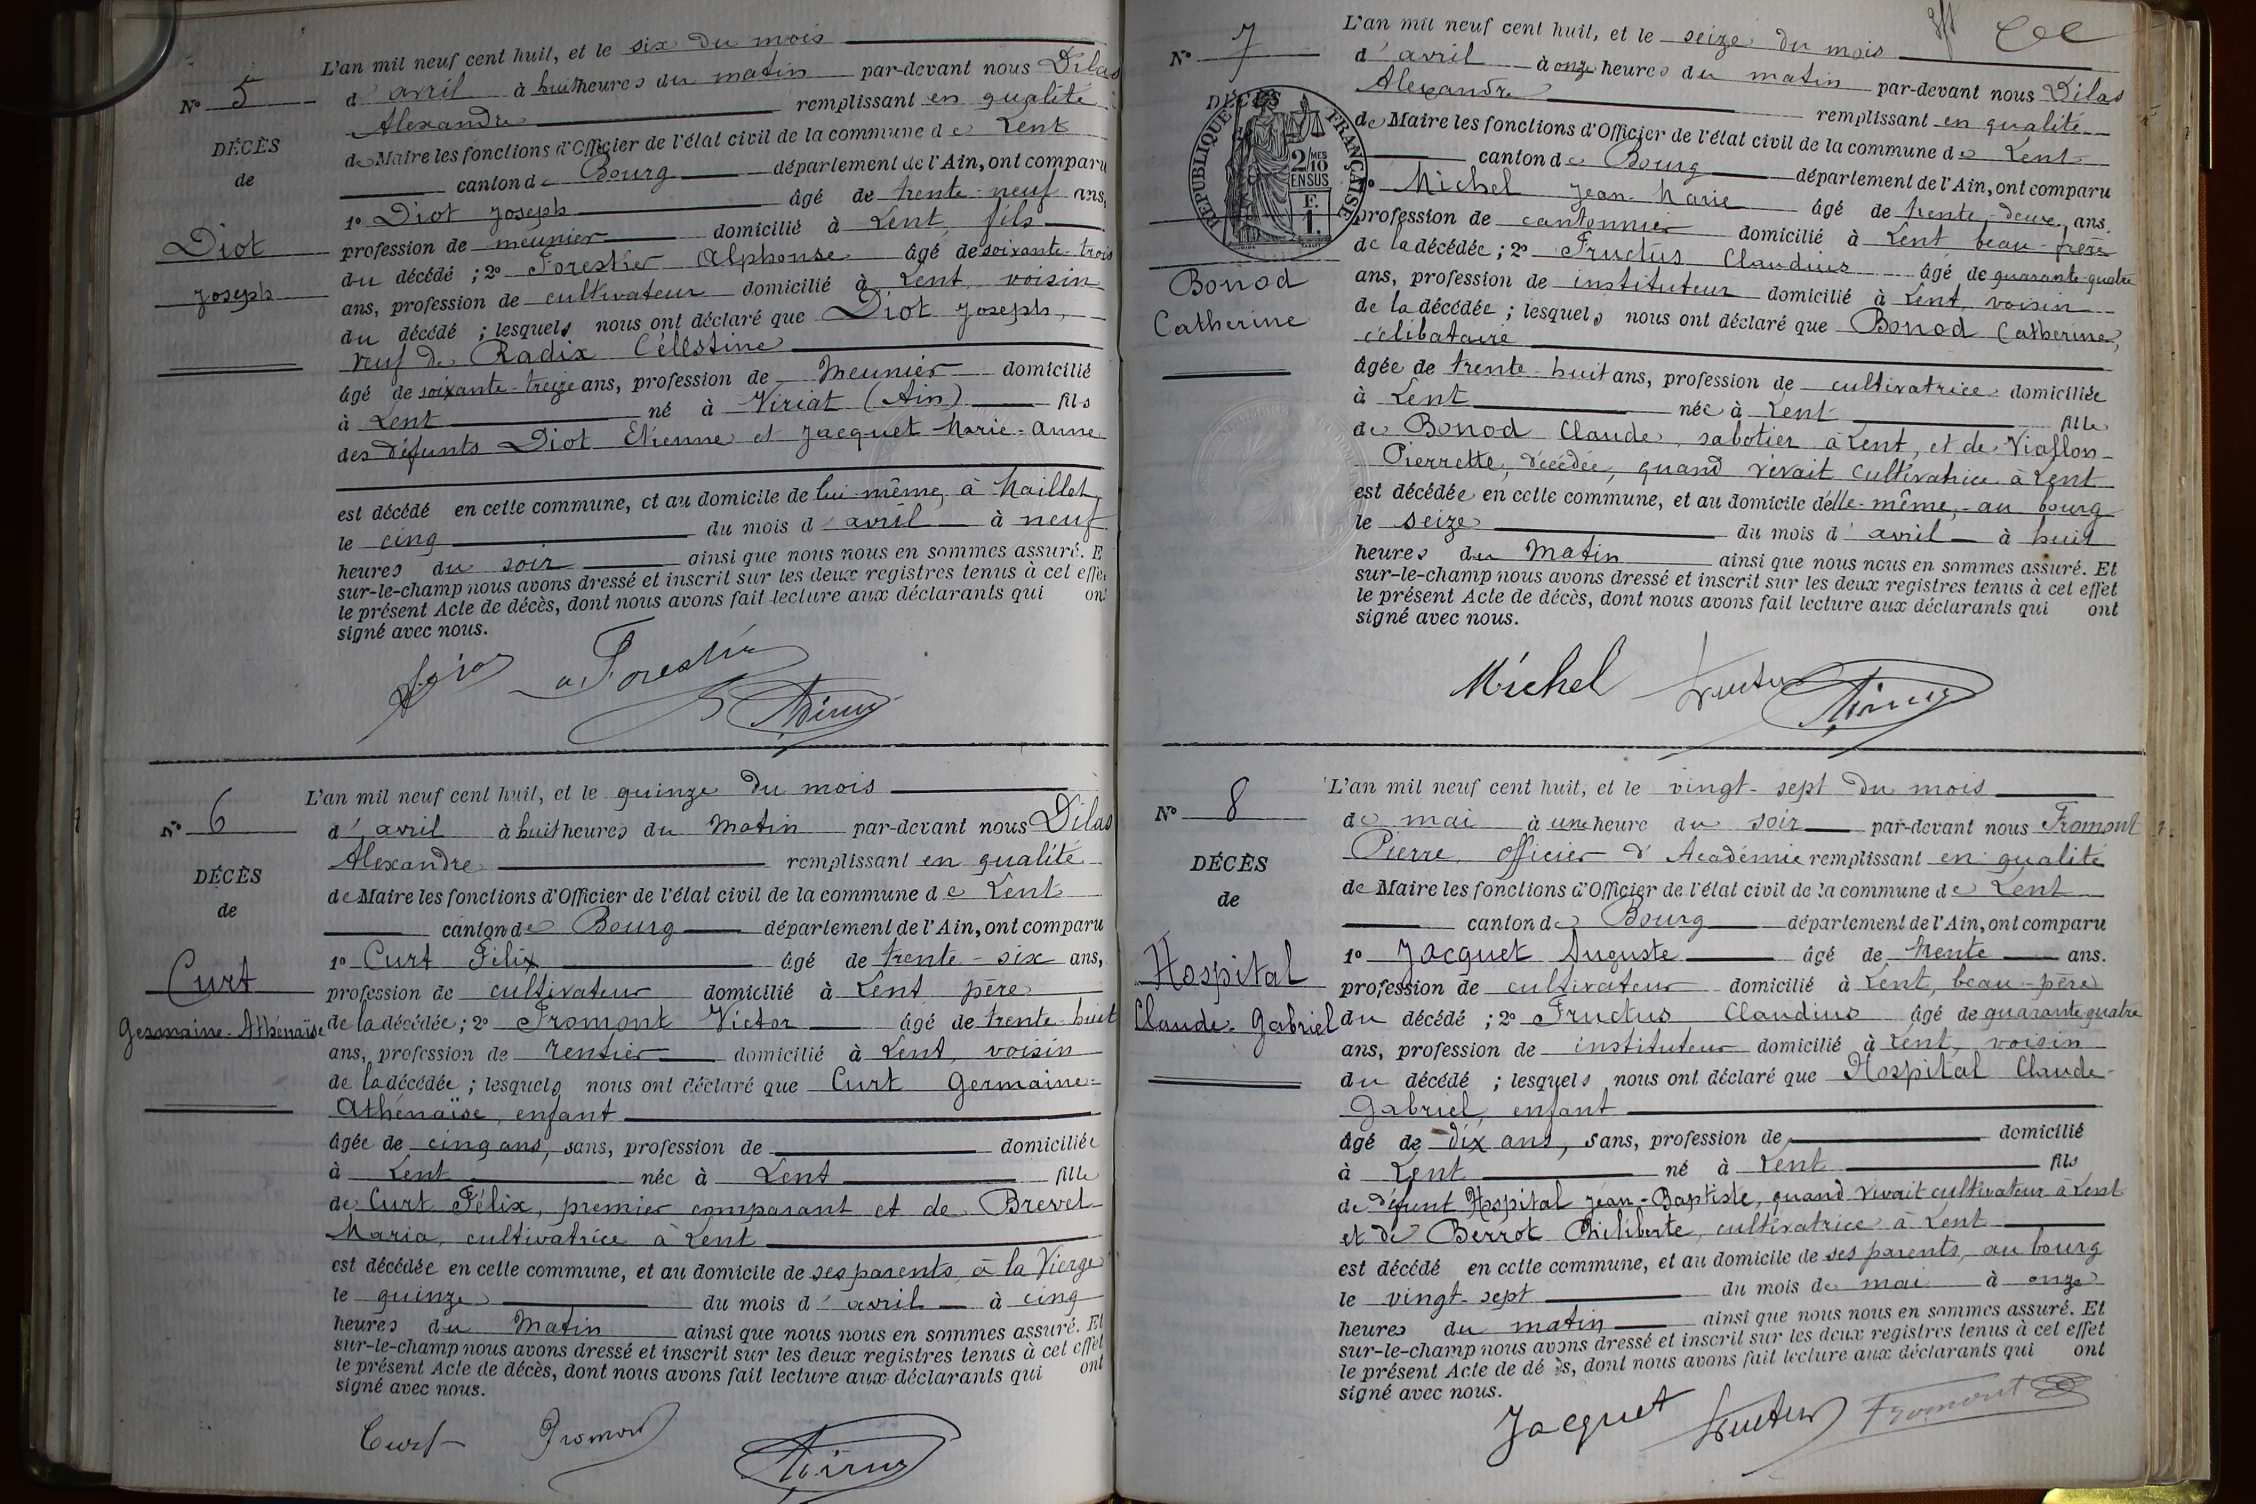 L'an mil neuf cent huit, et le six du mois
N° 5 d'avril à huit heures du matin par-devant nous Dilas
Alexandre remplissant en qualité
DÉCÈS de Maire les fonctions d'Officier de l'état civil de la commune de Lent
de canton de Bourg département de l'Ain, ont comparu
1° Diot Joseph âgé de trente-neuf ans,
Diot profession de meunier domicilié à Lent, fils
du décédé ; 2° Forestier Alphonse âgé de soixante-trois
Joseph ans, profession de cultivateur domicilié à Lent, voisin
du décédé ; lesquels nous ont déclaré que Diot Joseph,
veuf de Radix Célestine
âgé de soixante-treize ans, profession de Meunier domicilié
à Lent né à Viriat (Ain) fils
des défunts Diot Etienne et Jacquet Marie-Anne
est décédé en cette commune, et au domicile de lui-même, à Maillet
le cinq du mois d'avril à neuf
heures du soir ainsi que nous nous en sommes assuré. E
sur-le-champ nous avons dressé et inscrit sur les deux registres tenus à cet effe
le présent Acte de décès, dont nous avons fait lecture aux déclarants qui ont
signé avec nous.
a. Forestier
L'an mil neuf cent huit, et le quinze du mois
N° 6 d'avril à huit heures du Matin par-devant nous Dilas
Alexandre remplissant en qualité
DÉCÈS de Maire les fonctions d'Officier de l'état civil de la commune de Lent
de canton de Bourg département de l'Ain, ont comparu
1° Curt Félix âgé de trente-six ans,
Curt profession de cultivateur domicilié à Lent père
Germaine-Athénaïse de la décédée ; 2° Fromont Victor âgé de trente-huit
ans, profession de rentier domicilié à Lent, voisin
de la décédée ; lesquels nous ont déclaré que Curt Germaine-
Athénaïse, enfant
âgée de cinq ans, sans, profession de domiciliée
à Lent née à Lent fille
de Curt Félix, premier comparant et de Brevet
Maria, cultivatrice à Lent
est décédée en cette commune, et au domicile de ses parents, à la Vierge
le quinze du mois d'avril à cinq
heures du Matin ainsi que nous nous en sommes assuré. Et
sur-le-champ nous avons dressé et inscrit sur les deux registres tenus à cet effet
le présent Acte de décès, dont nous avons fait lecture aux déclarants qui ont
signé avec nous.
Curt Fromont
L'an mil neuf cent huit, et le seize du mois
N° 7 d'avril à onze heures du matin par-devant nous Dilas
Alexandre remplissant en qualité
DÉCÈS de Maire les fonctions d'Officier de l'état civil de la commune de Lent
canton de Bourg département de l'Ain, ont comparu
RÉPUBLIQUE FRANÇAISE
2/10 MES
EN SUS
F.
1.
1° Michel Jean-Marie âgé de trente-deux, ans.
profession de cantonnier domicilié à Lent beau-frère
de la décédée ; 2° Fructus Claudius âgé de quarante-quatre
Bonod ans, profession de instituteur domicilié à Lent, voisin
Catherine de la décédée ; lesquels nous ont déclaré que Bonod Catherine,
célibataire
âgée de trente-huit ans, profession de cultivatrice domiciliée
à Lent née à Lent fille
de Bonod Claude, sabotier à Lent, et de Viallon
Pierrette, décédée, quand vivait cultivatrice à Lent
est décédée en cette commune, et au domicile d'elle-même, au bourg
le seize du mois d'avril à huit
heures du Matin ainsi que nous nous en sommes assuré. Et
sur-le-champ nous avons dressé et inscrit sur les deux registres tenus à cet effet
le présent Acte de décès, dont nous avons fait lecture aux déclarants qui ont
signé avec nous.
Michel Fructus
L'an mil neuf cent huit, et le vingt-sept du mois
N° 8 de mai à une heure du soir par-devant nous Fromont
Pierre, officier d'Académie remplissant en qualité
DÉCÈS de Maire les fonctions d'Officier de l'état civil de la commune de Lent
de canton de Bourg département de l'Ain, ont comparu
1° Jacquet Auguste âgé de trente ans.
Hospital profession de cultivateur domicilié à Lent, beau-père
Claude-Gabriel du décédé ; 2° Fructus Claudius âgé de quarante-quatre
ans, profession de instituteur domicilié à Lent, voisin
du décédé ; lesquels nous ont déclaré que Hospital Claude-
Gabriel, enfant
âgé de dix ans, sans, profession de domicilié
à Lent né à Lent fils
de défunt Hospital Jean-Baptiste, quand vivait cultivateur à Lent
et de Berrot Philiberte, cultivatrice à Lent
est décédé en cette commune, et au domicile de ses parents, au bourg
le vingt-sept du mois de mai à onze
heures du matin ainsi que nous nous en sommes assuré. Et
sur-le-champ nous avons dressé et inscrit sur les deux registres tenus à cet effet
le présent Acte de dé ès, dont nous avons fait lecture aux déclarants qui ont
signé avec nous.
Jacquet Fructus Fromont